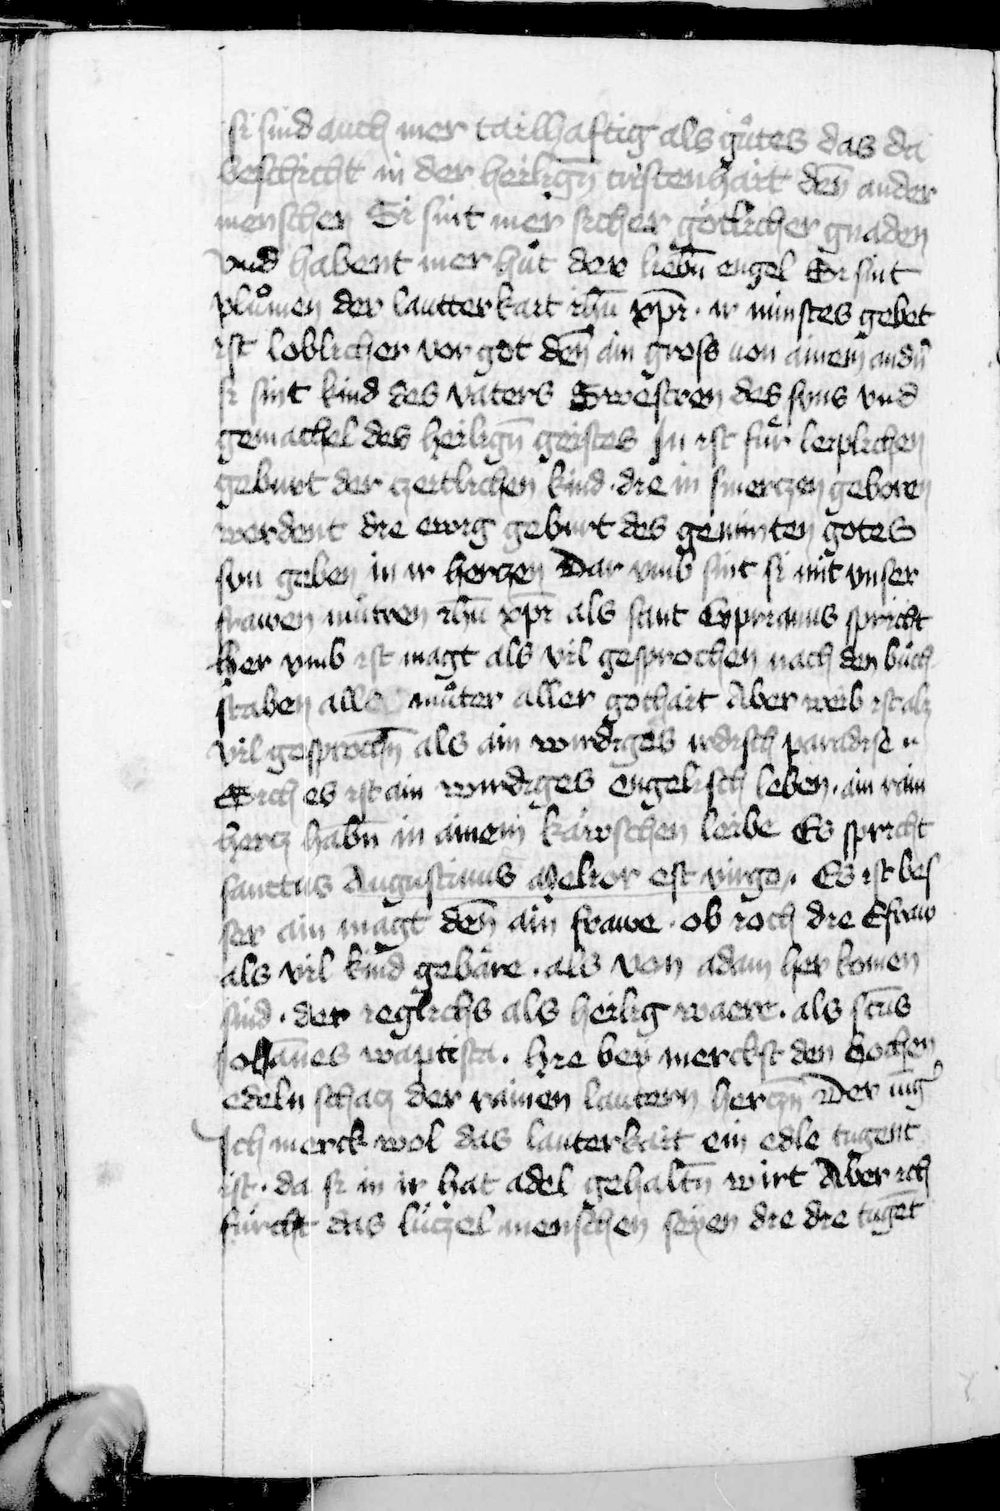 si sind auch mer tailhaftig als gůtes das da
beschicht in der heilign̄ cristenhait den̄ ander
menschen Si sint mer sicher götlicher gnaden
vnd habent mer hůt der liebn̄ engel Si sint
plůmen der lautterkait ihū xpi · ir minstes gebet
ist loblicher vor got den̄ ain gross von ainem andn̄
si sint kind des vaters Swestren des suns vnd
gemachel des heilign̄ geistes In ist fúr leiplichen
geburt der czeitlichen kind · die in smerczen geboren
werdent die ewig geburt des geminten gotes
sun geben in ir herczen Dar vmb sint si mit vnser
frawen můtren ihū xpi als sant Cyprianus spricht
her vmb ist magt als vil gesprochen nach den bůch
staben alle můter aller gothait Aber weib ist alz
vil gesprochn̄ als ain wirdiges irdisch paradise ..
Sich es ist ain wirdiges engelisch leben · ain rain
hercz habn̄ in ainem käwschen leibe Es spricht
sanctus Augustinus Melior est virgo · Es ist bes
ser ain magt den̄ ain frawe · ob ioch die Efraw
als vil kind gebäre · als von adam her komen
sind · der ieglichs als heilig waere · als sc̄us
Johānes waptista · Hie bey merckst den hochen
edeln schacz der rainen lautern herczn̄ Der iung̕
Ich merck wol das lauterkait ein edle tugent
ist · da si in ir hat adel gehaltn̄ wirt Aber ich
fúrcht das lúczel menschen seyen die die tugēt